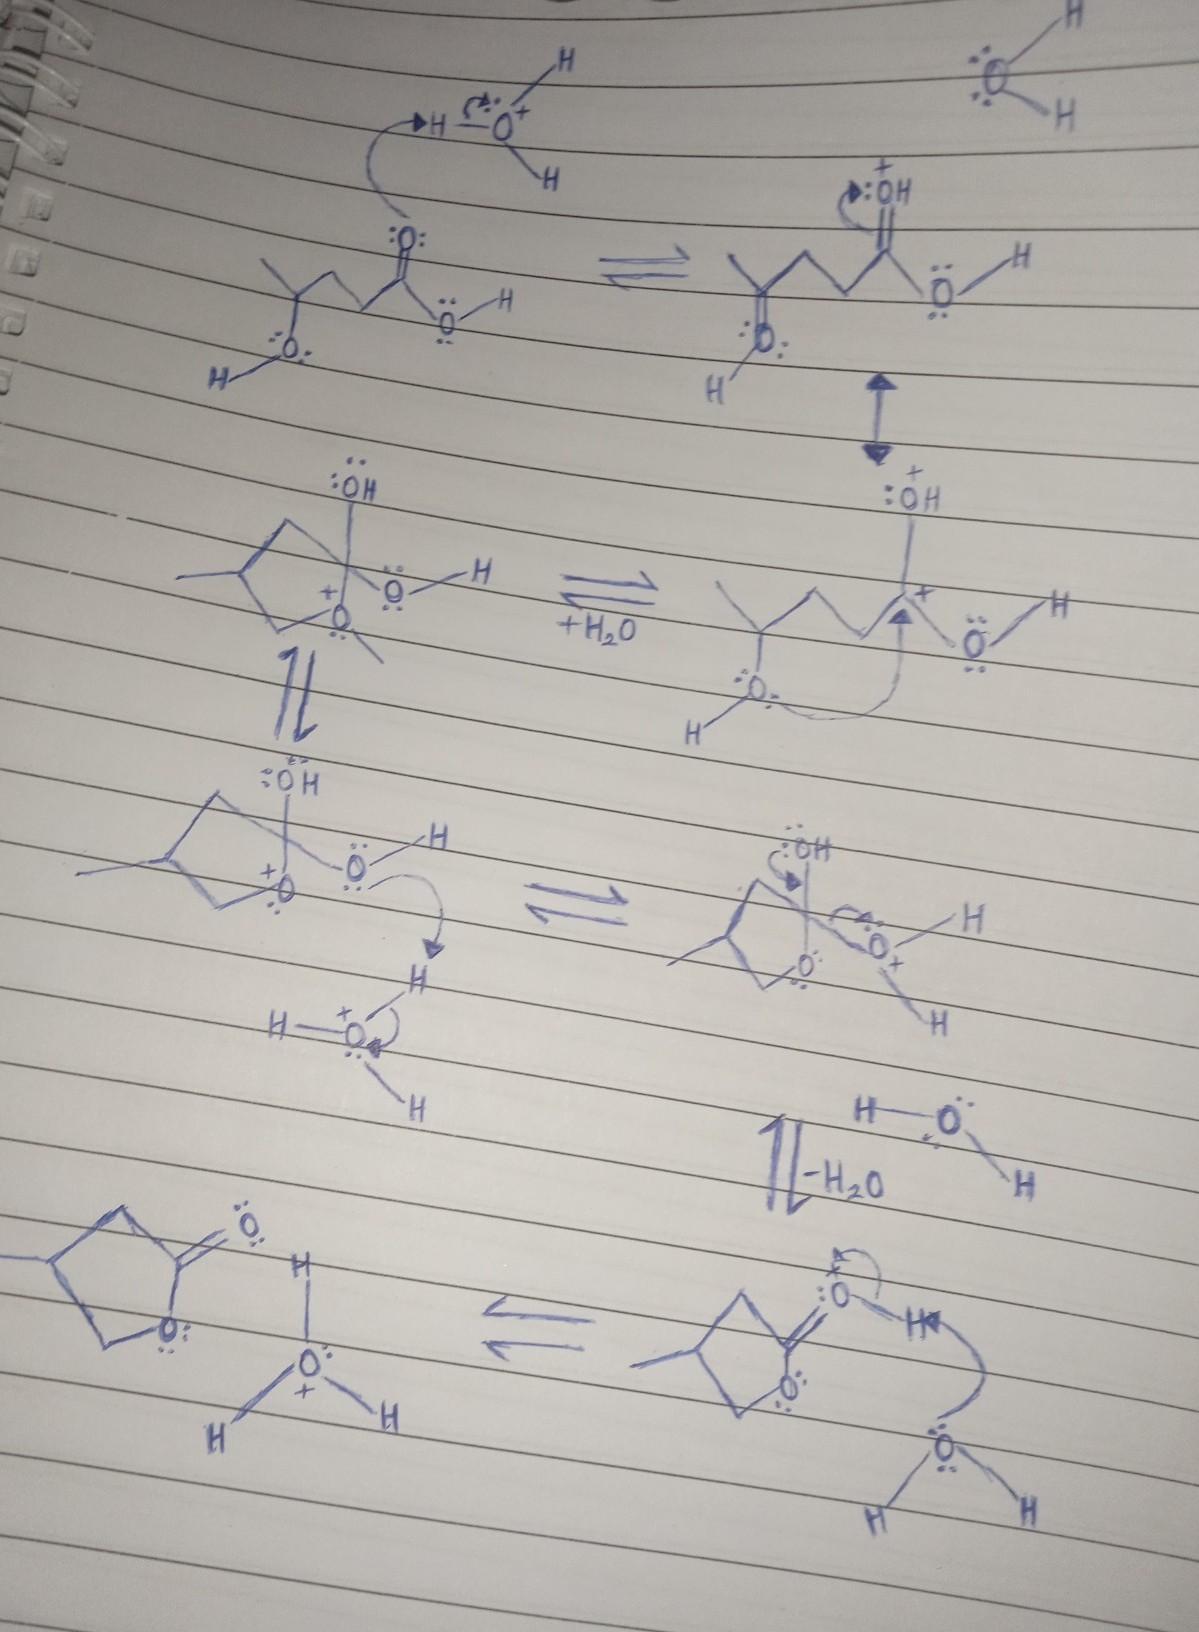 H
H
H –O+
O
H
H
+
:OH
:O:
O H
O H
:O:
:O:
H
H
+
:OH
:OH
+ O H
+ O H
O
+H2O
:O:
H
:OH
H
+ O
O
:OH
O H
O +
H
H
H –O +
H
H –O
H
-H2O
O
+
:O
H
H
O:
O:
O
+
H
H
O
H
H